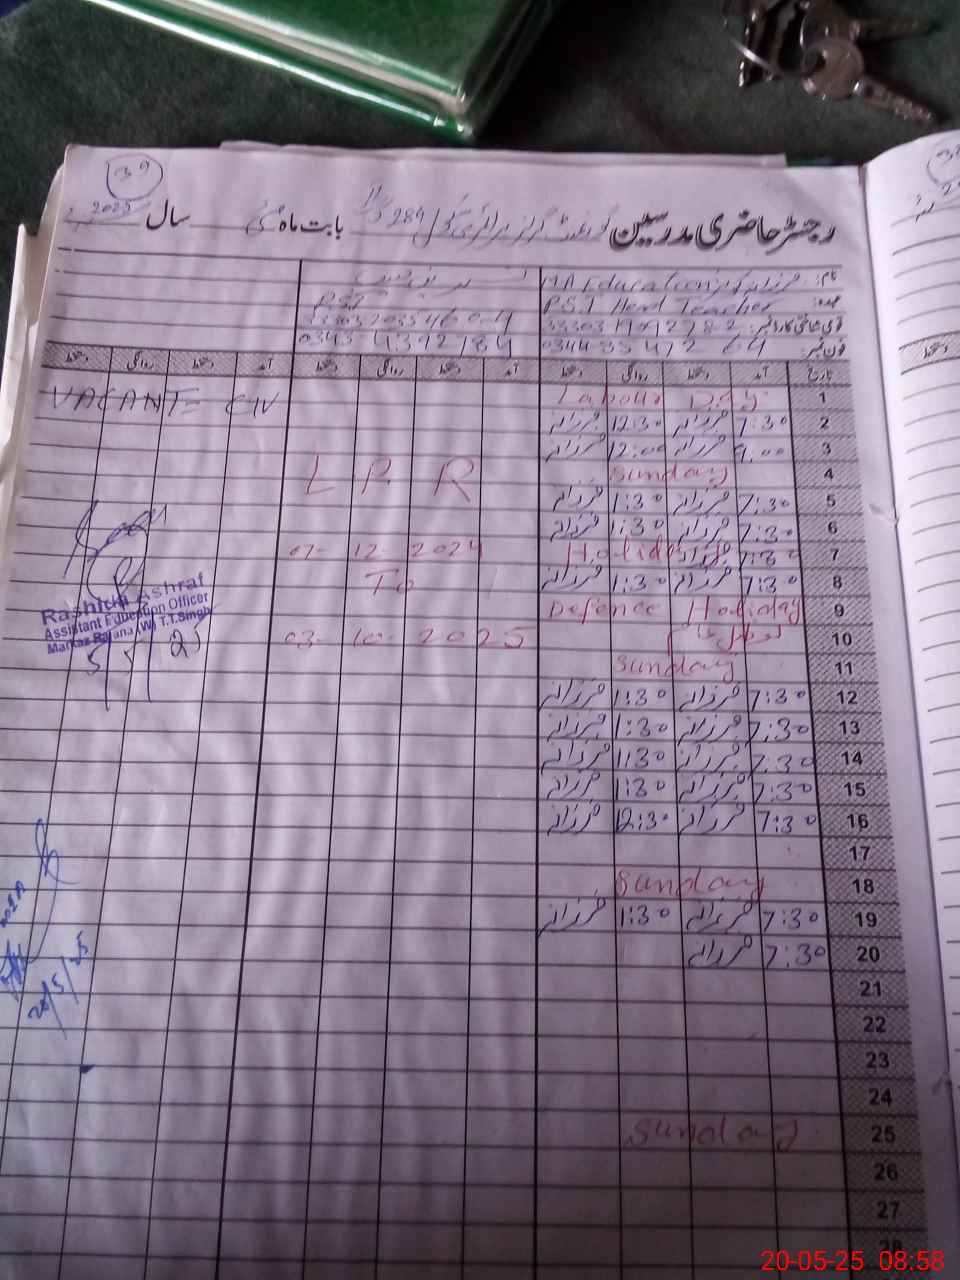 39
رجسٹر حاضری مدرسین گورنمنٹ گرلز پرائمری سکول 289 گ ب بابت ماہ مئی سال 2025
نام: M.A Education
عہدہ: P.S.T Head Teacher PST
قومی شناختی کارڈ نمبر:
فون نمبر:
تاریخ آمد دستخط روانگی دستخط آمد دستخط روانگی دستخط آمد دستخط روانگی دستخط
1 Labour Day
VACANT = CIV
2 7:30 فرزانہ 12:30 فرزانہ
3 9:00 فرزانہ 12:00 فرزانہ
4 Sunday
L P R
5 7:30 فرزانہ 1:30 فرزانہ
6 7:30 فرزانہ 1:30 فرزانہ
7 7:30 Holiday
07-12-2024
8 7:30 فرزانہ 1:30 فرزانہ
To
9 Defence Holiday
10 لوکل
03-10-2025
11 Sunday
12 7:30 فرزانہ 1:30 فرزانہ
13 7:30 فرزانہ 1:30 فرزانہ
14 7:30 فرزانہ 1:30 فرزانہ
15 7:30 فرزانہ 1:30 فرزانہ
16 7:30 فرزانہ 12:30 فرزانہ
17
18 Sunday
19 7:30 فرزانہ 1:30 فرزانہ
20 7:30 فرزانہ
21
22
23
24
25 Sunday
26
27
28
Rashida Ashraf
Assistant Education Officer
Markaz Rajana (W) T.T.Singh
5/5/25
20/5/25
دستخط
20-05-25 08:58